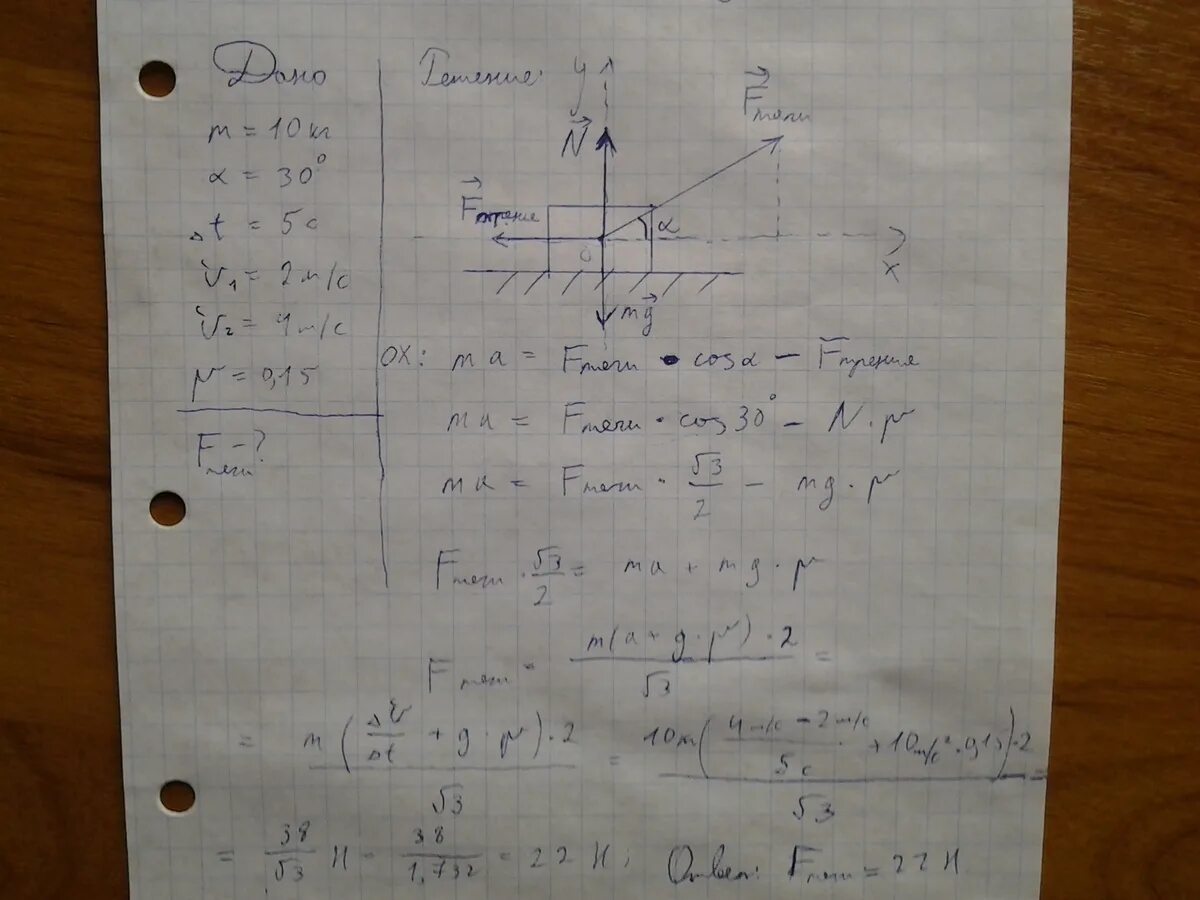 Дано
m = 10 кг
α = 30°
Δt = 5 с
v₁ = 2 м/с
v₂ = 4 м/с
μ = 0,15
Fтяги - ?
Решение:
y
N
Fтяги
Fтрение
α
0
x
mg
OX: ma = Fтяги · cosα − Fтрения
ma = Fтяги · cos30° − N · μ
ma = Fтяги · √3/2 − mg · μ
Fтяги · √3/2 = ma + mg · μ
Fтяги = m(a + g · μ) · 2 / √3 =
= m(Δv/Δt + g · μ) · 2 / √3 = 10кг(4м/с − 2м/с / 5с + 10м/с² · 0,15) · 2 / √3 =
= 38/√3 Н = 38/1,732 = 22 Н; Ответ: Fтяги = 22 Н